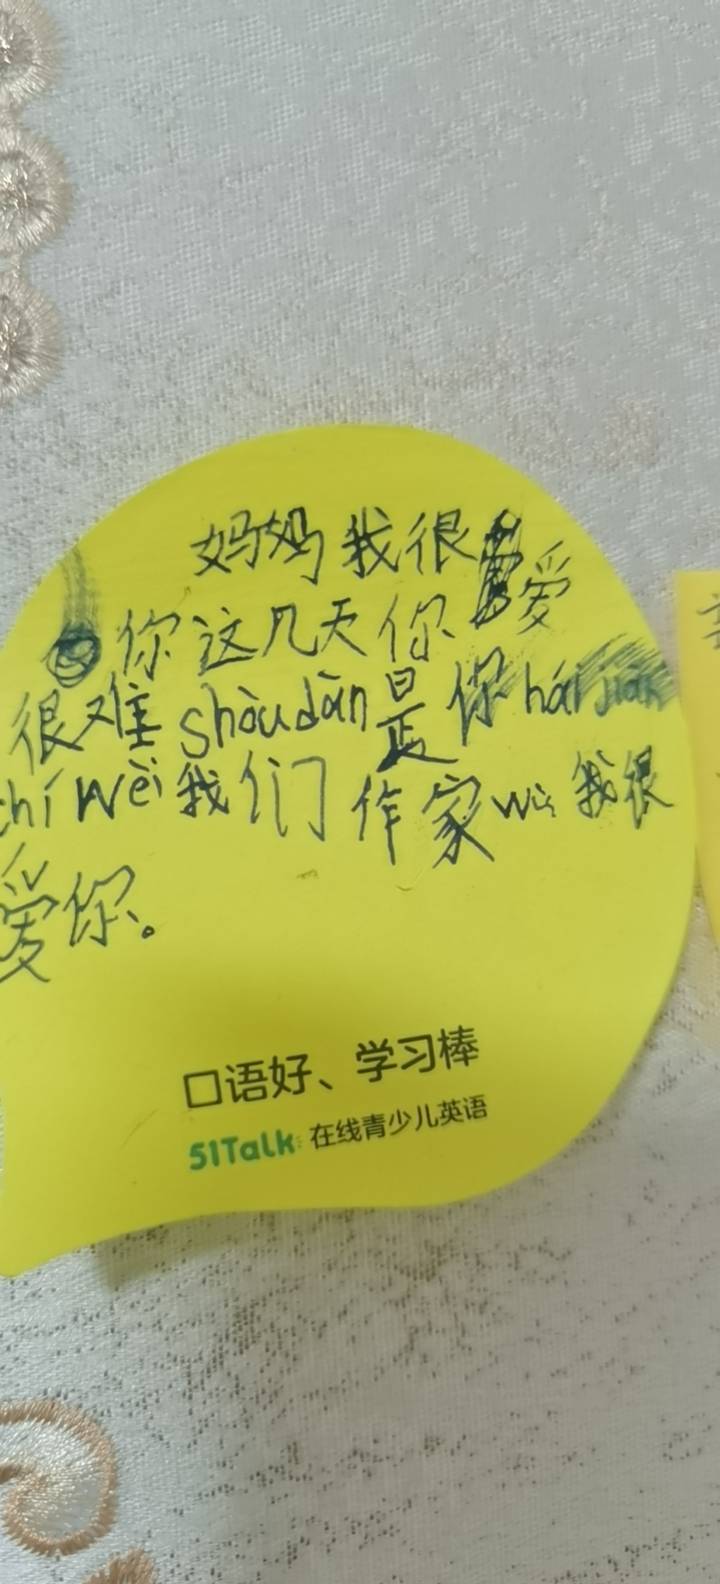 妈妈我很爱
你这几天你
很难shòudàn是你háijiān
chíwèi我们作家wù我很
爱你。
口语好、学习棒
51Talk 在线青少儿英语